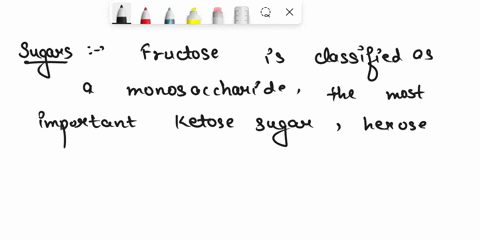 Sugars :- Fructose is classified as
a monosaccharide, the most
important Ketose sugar, hexose